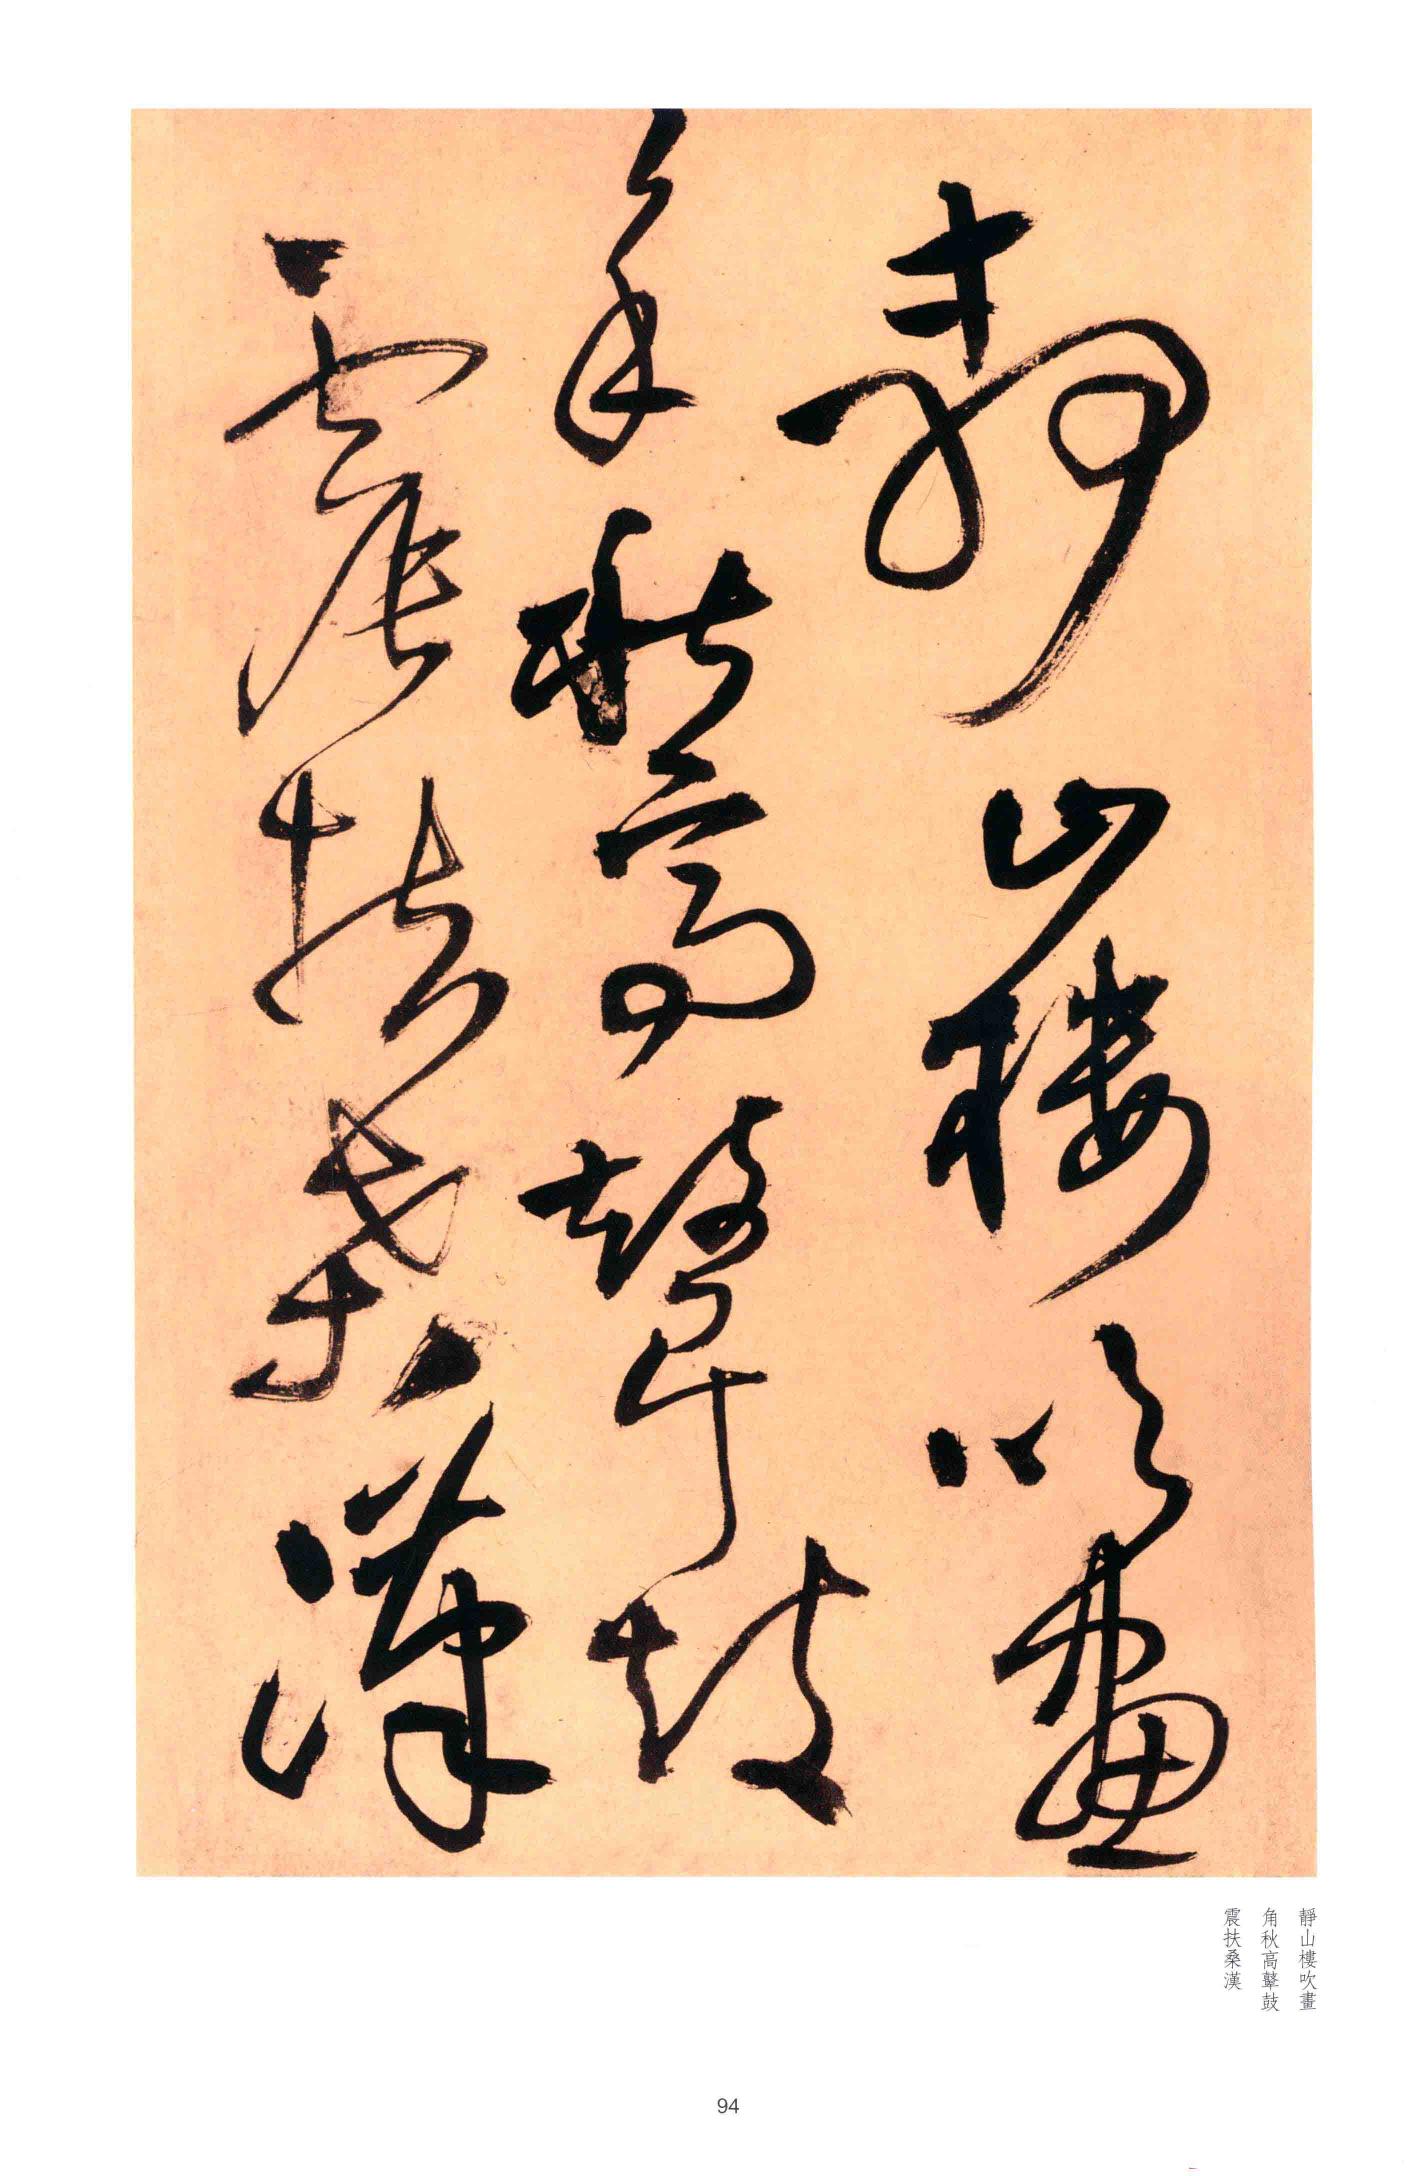 靜山樓吹畫
角秋高鼙鼓
震扶桑漢
靜山樓吹畫
角秋高鼙鼓
震扶桑漢
94